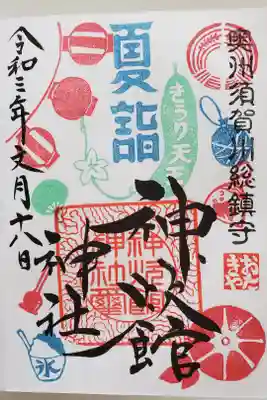 奥州須賀川総鎮守
夏詣
きうり天王
神炊館
神社
令和三年文月十八日
氷